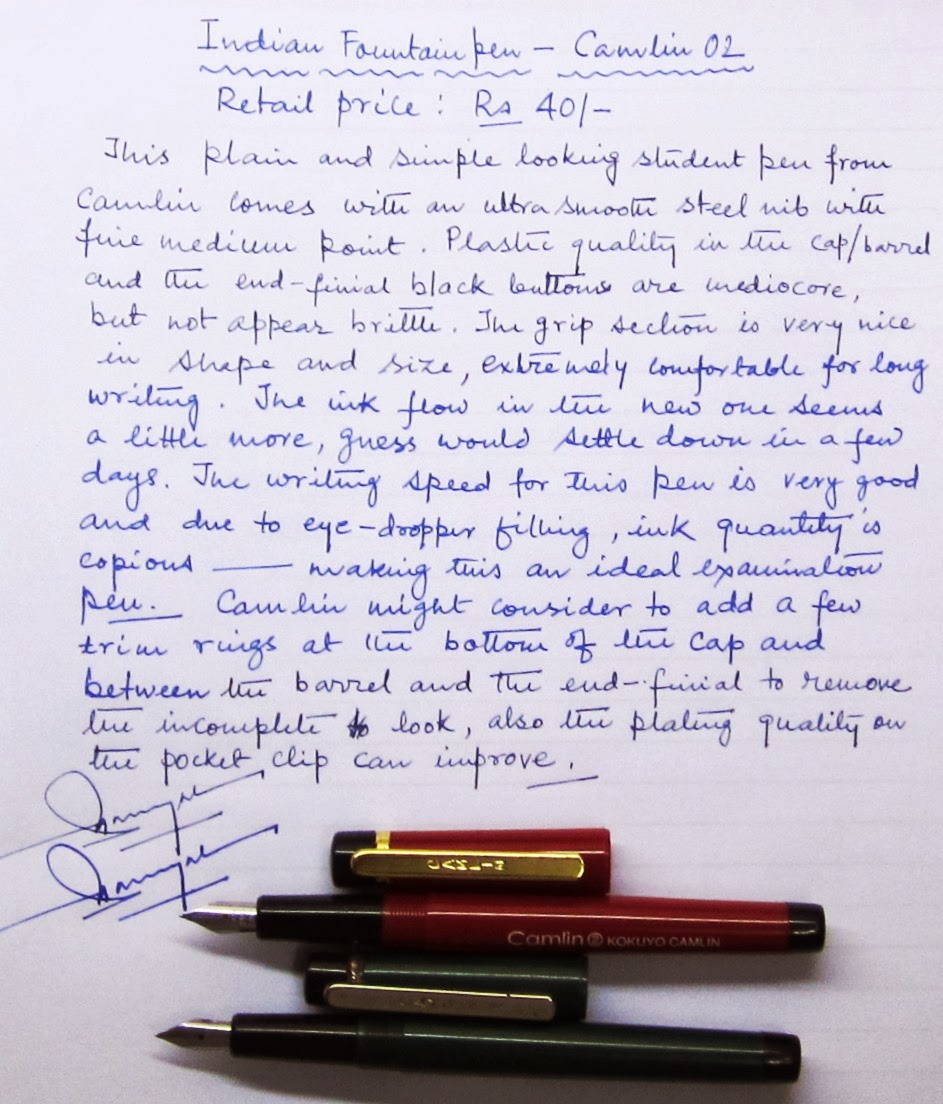 Indian Fountain pen - Camlin 02
Retail price : Rs 40/-
This plain and simple looking student pen from
Camlin comes with an ultra smooth steel nib with
fine medium point. Plastic quality in the cap/barrel
and the end-finial black buttons are mediocore,
but not appear brittle. The grip section is very nice
in shape and size, extremely comfortable for long
writing. The ink flow in the new one seems
a little more, guess would settle down in a few
days. The writing speed for this pen is very good
and due to eye-dropper filling, ink quantity is
copious — making this an ideal examination
pen. Camlin might consider to add a few
trim rings at the bottom of the cap and
between the barrel and the end-finial to remove
the incomplete look, also the plating quality on
the pocket clip can improve.
CAMLIN
Camlin KOKUYO CAMLIN